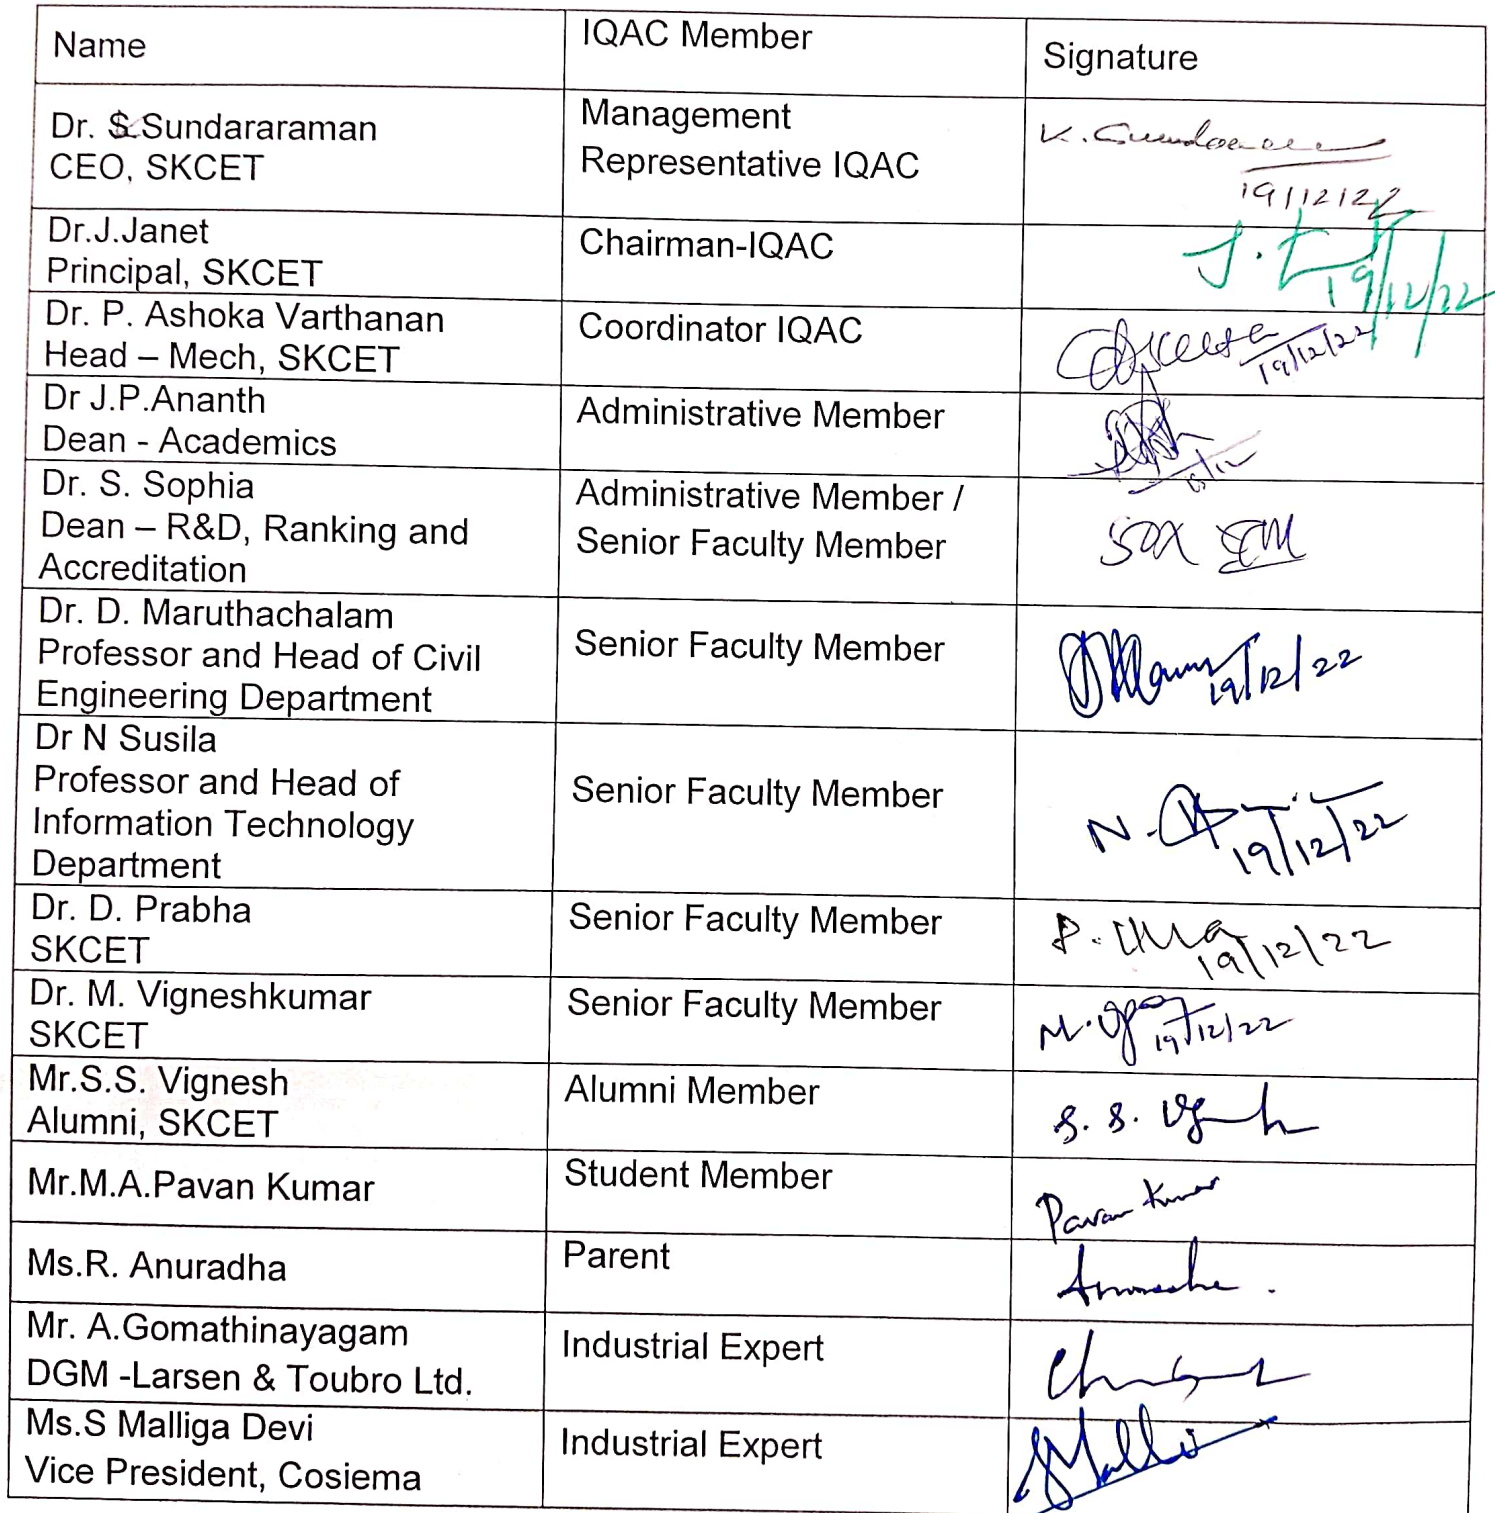 Name
IQAC Member
Signature
Dr. S.Sundararaman
CEO, SKCET
Management
Representative IQAC
K. Sundararaman
19/12/22
Dr.J.Janet
Principal, SKCET
Chairman-IQAC
J.
19/12/22
Dr. P. Ashoka Varthanan
Head – Mech, SKCET
Coordinator IQAC
19/12/22
Dr J.P.Ananth
Dean - Academics
Administrative Member
Dr. S. Sophia
Dean – R&D, Ranking and
Accreditation
Administrative Member /
Senior Faculty Member
Dr. D. Maruthachalam
Professor and Head of Civil
Engineering Department
Senior Faculty Member
19/12/22
Dr N Susila
Professor and Head of
Information Technology
Department
Senior Faculty Member
N.
19/12/22
Dr. D. Prabha
SKCET
Senior Faculty Member
19/12/22
Dr. M. Vigneshkumar
SKCET
Senior Faculty Member
M.
19/12/22
Mr.S.S. Vignesh
Alumni, SKCET
Alumni Member
S. S. Vignesh
Mr.M.A.Pavan Kumar
Student Member
Pavan Kumar
Ms.R. Anuradha
Parent
Mr. A.Gomathinayagam
DGM -Larsen & Toubro Ltd.
Industrial Expert
Ms.S Malliga Devi
Vice President, Cosiema
Industrial Expert